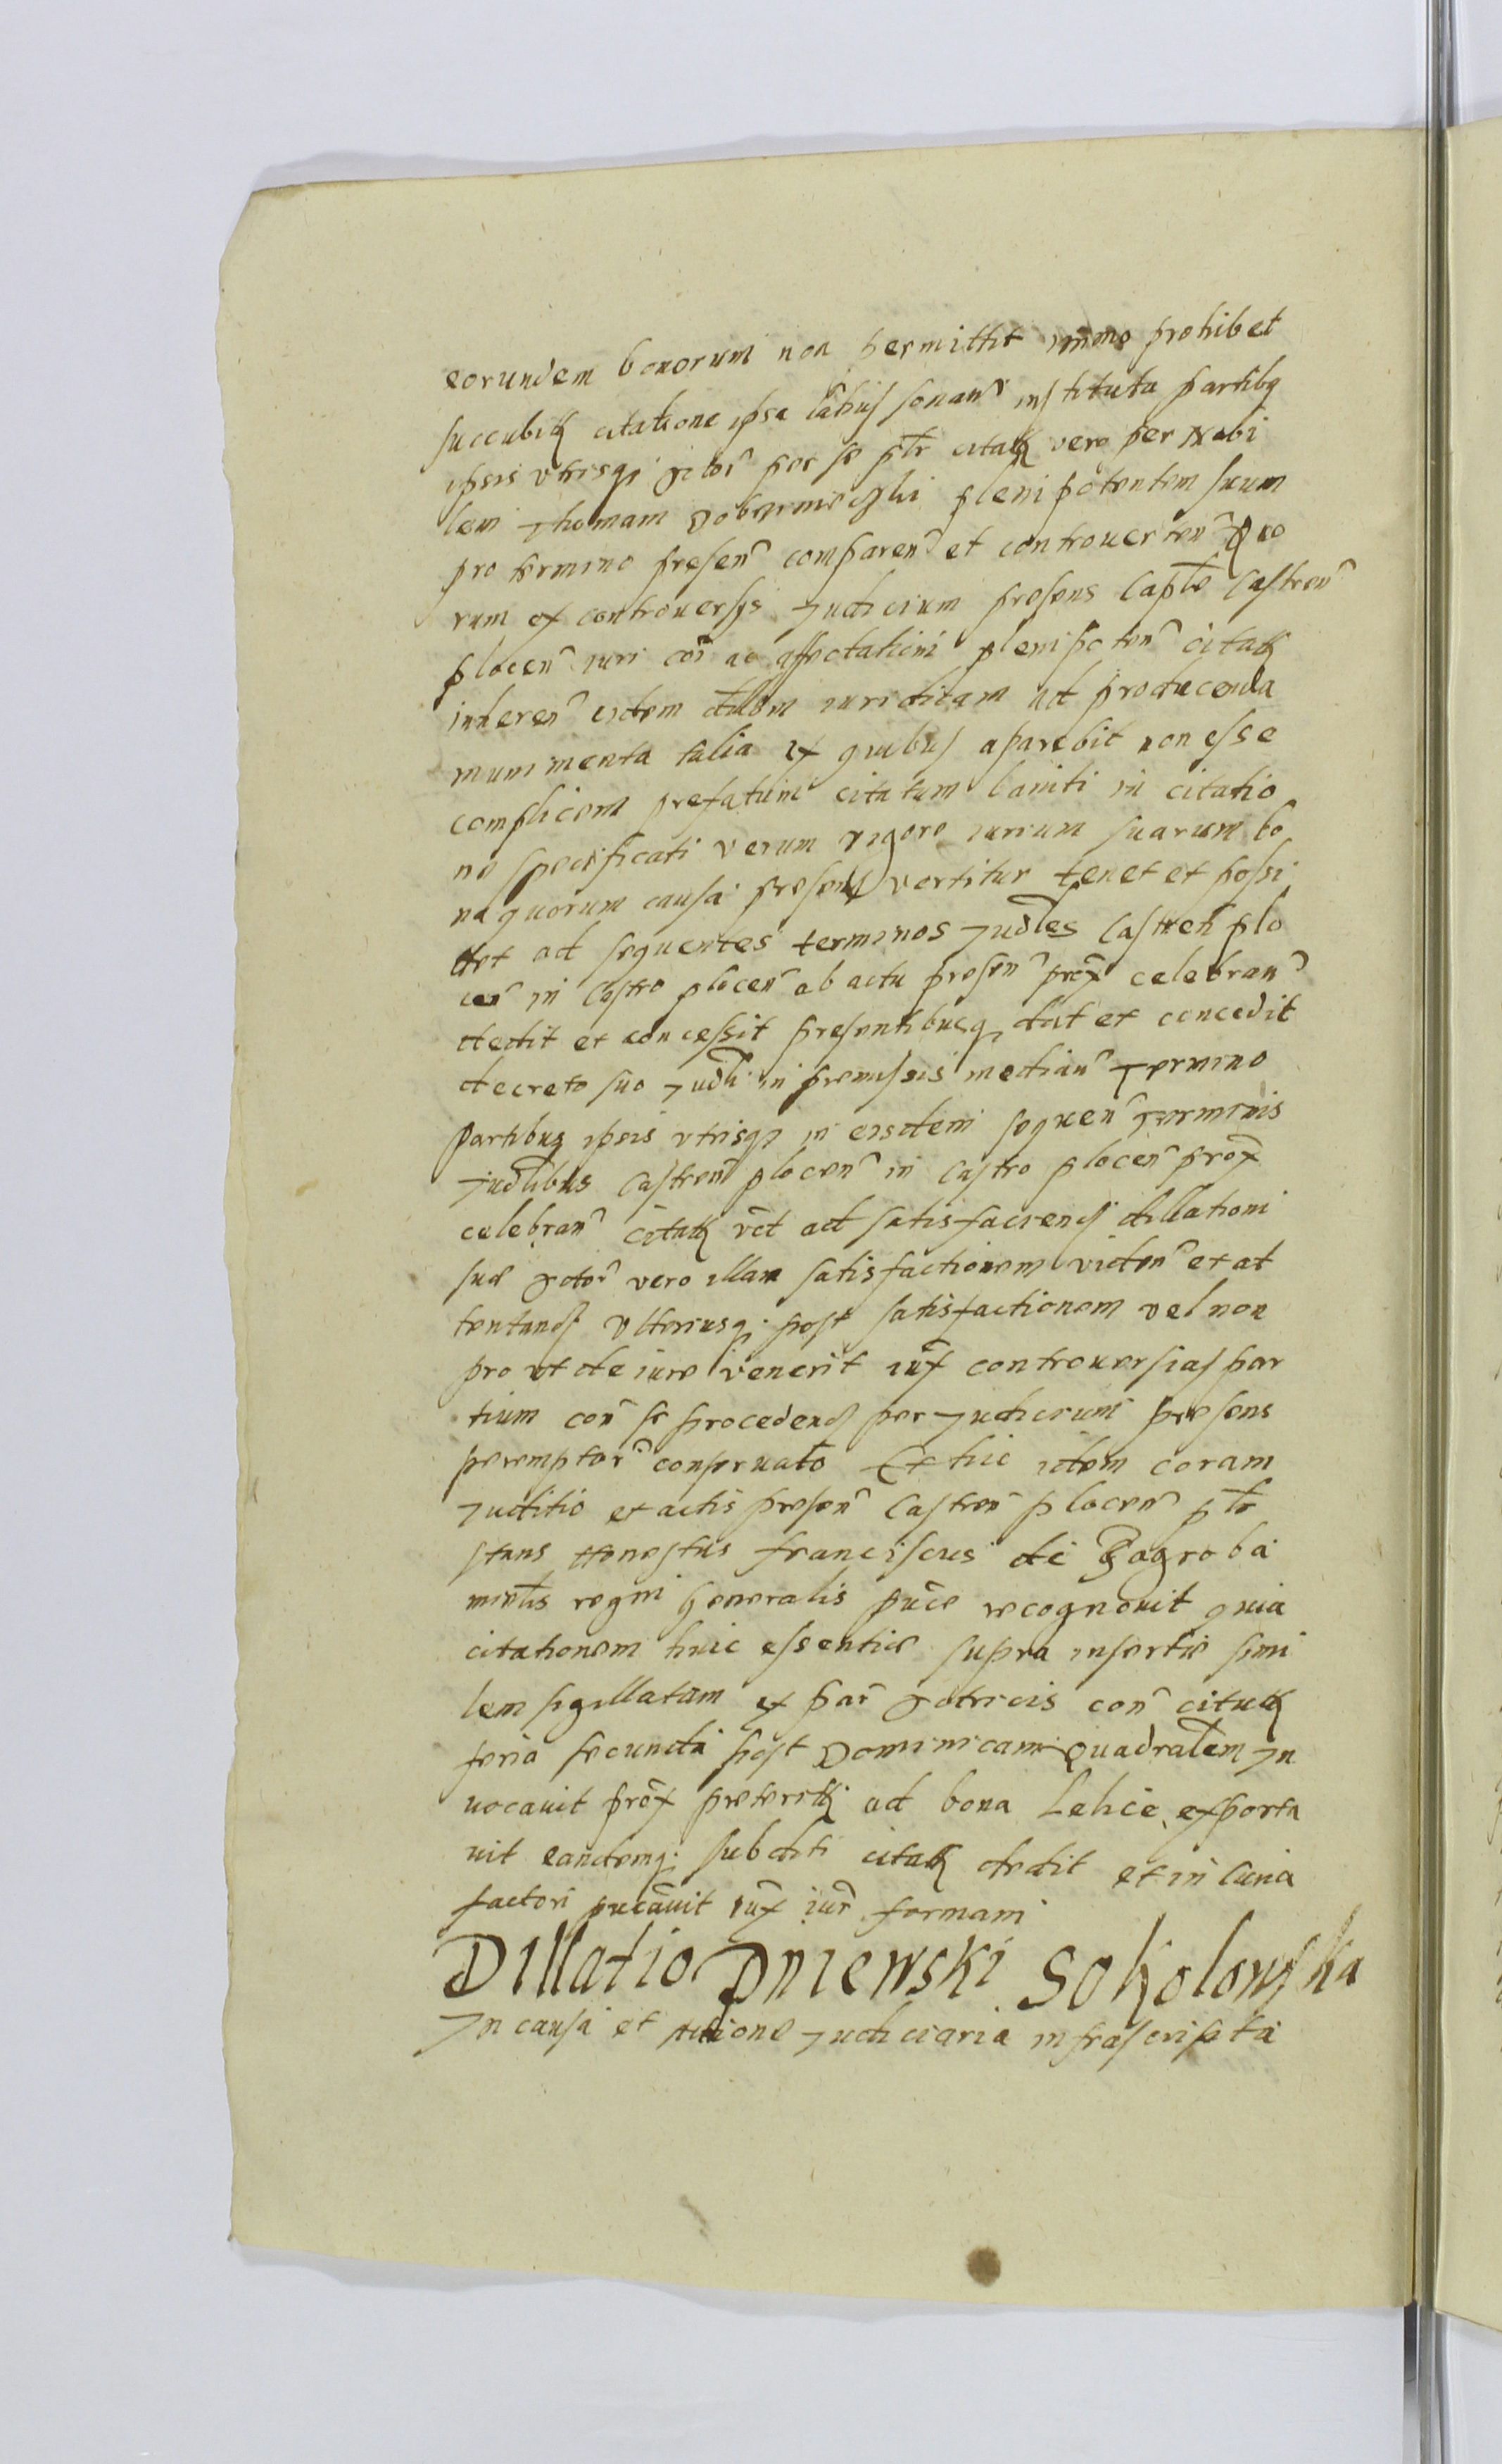 eorundem bonorum non permittit immo prohibet
succubitꝝ citatione ipsa latius sonanᵗ instituta partibꝫ
ipsis utrisqꝫ actor̃ per se pr̃ citatꝝ vero per Nobi
lem Thomam plenipotentem suum
pro termino presenᵗ comparenᵗ et controuertenᵗ Quo
rum ex controuersijs Judicium presens Capt̃le Castrenᵗ
plocenᵗ iuri coi ac affectationi plenipotenᵗ citatꝝ
inherenᵗ eidem dilõm iuridicam ad producenda
munimenta talia ex quibus aparebit non esse
complicem prefatum citatum baniti in citatio
ne specificati verum vigore iurium suarum bo
na quorum causa presens vertitur tenet et possi
det ad sequentes terminos Judles Castreñ plo
ceñ in Castro plocenᵗ ab actu presenᵗ prox̃ celebranᵗ
dedit et concessit presentibusqꝫ dat et concedit
decreto suo Judli in premissis medianᵗ Termino
partibus ipsis utrisqꝫ in eisdem sequenᵗ Terminis
Judlibus Castreñ plocenᵗ in Castro plocenᵗ prox̃
celebranᵗ citatꝝ vꝉ ad satisfaciendꝫ dillationi
sue Actor̃ vero illam satisfactionem videnᵈ et at
tentandꝫ Ulteriusqꝫ post satisfactionem vel non
pro ut de iure venerit iux̃ controuersias par
tium coñ se procedendꝫ per Judicium presens
peremptor̃ conseruato Et hic idem coram
Juditio et actis presenᵗ Castreñ plocenᵗ pr̃
stans Honestus franciscus de Zagroba
mintls regni Generalis puce recognouit quia
citationem huic essentie supra insertie simi
lem sigillatam ex par̃ Actricis conᵗ citatꝝ
feria secunda post Dominicam Quadralem In
uocauit prox̃ preteritꝝ ad bona Lelice exporta
uit eandemqꝫ subditi citatꝝ dedit et in curia
factori pucauit iux̃ iur̃ formam
Dillatio Dniewski Sokolowska
In causa et actione Judiciaria infrascripta